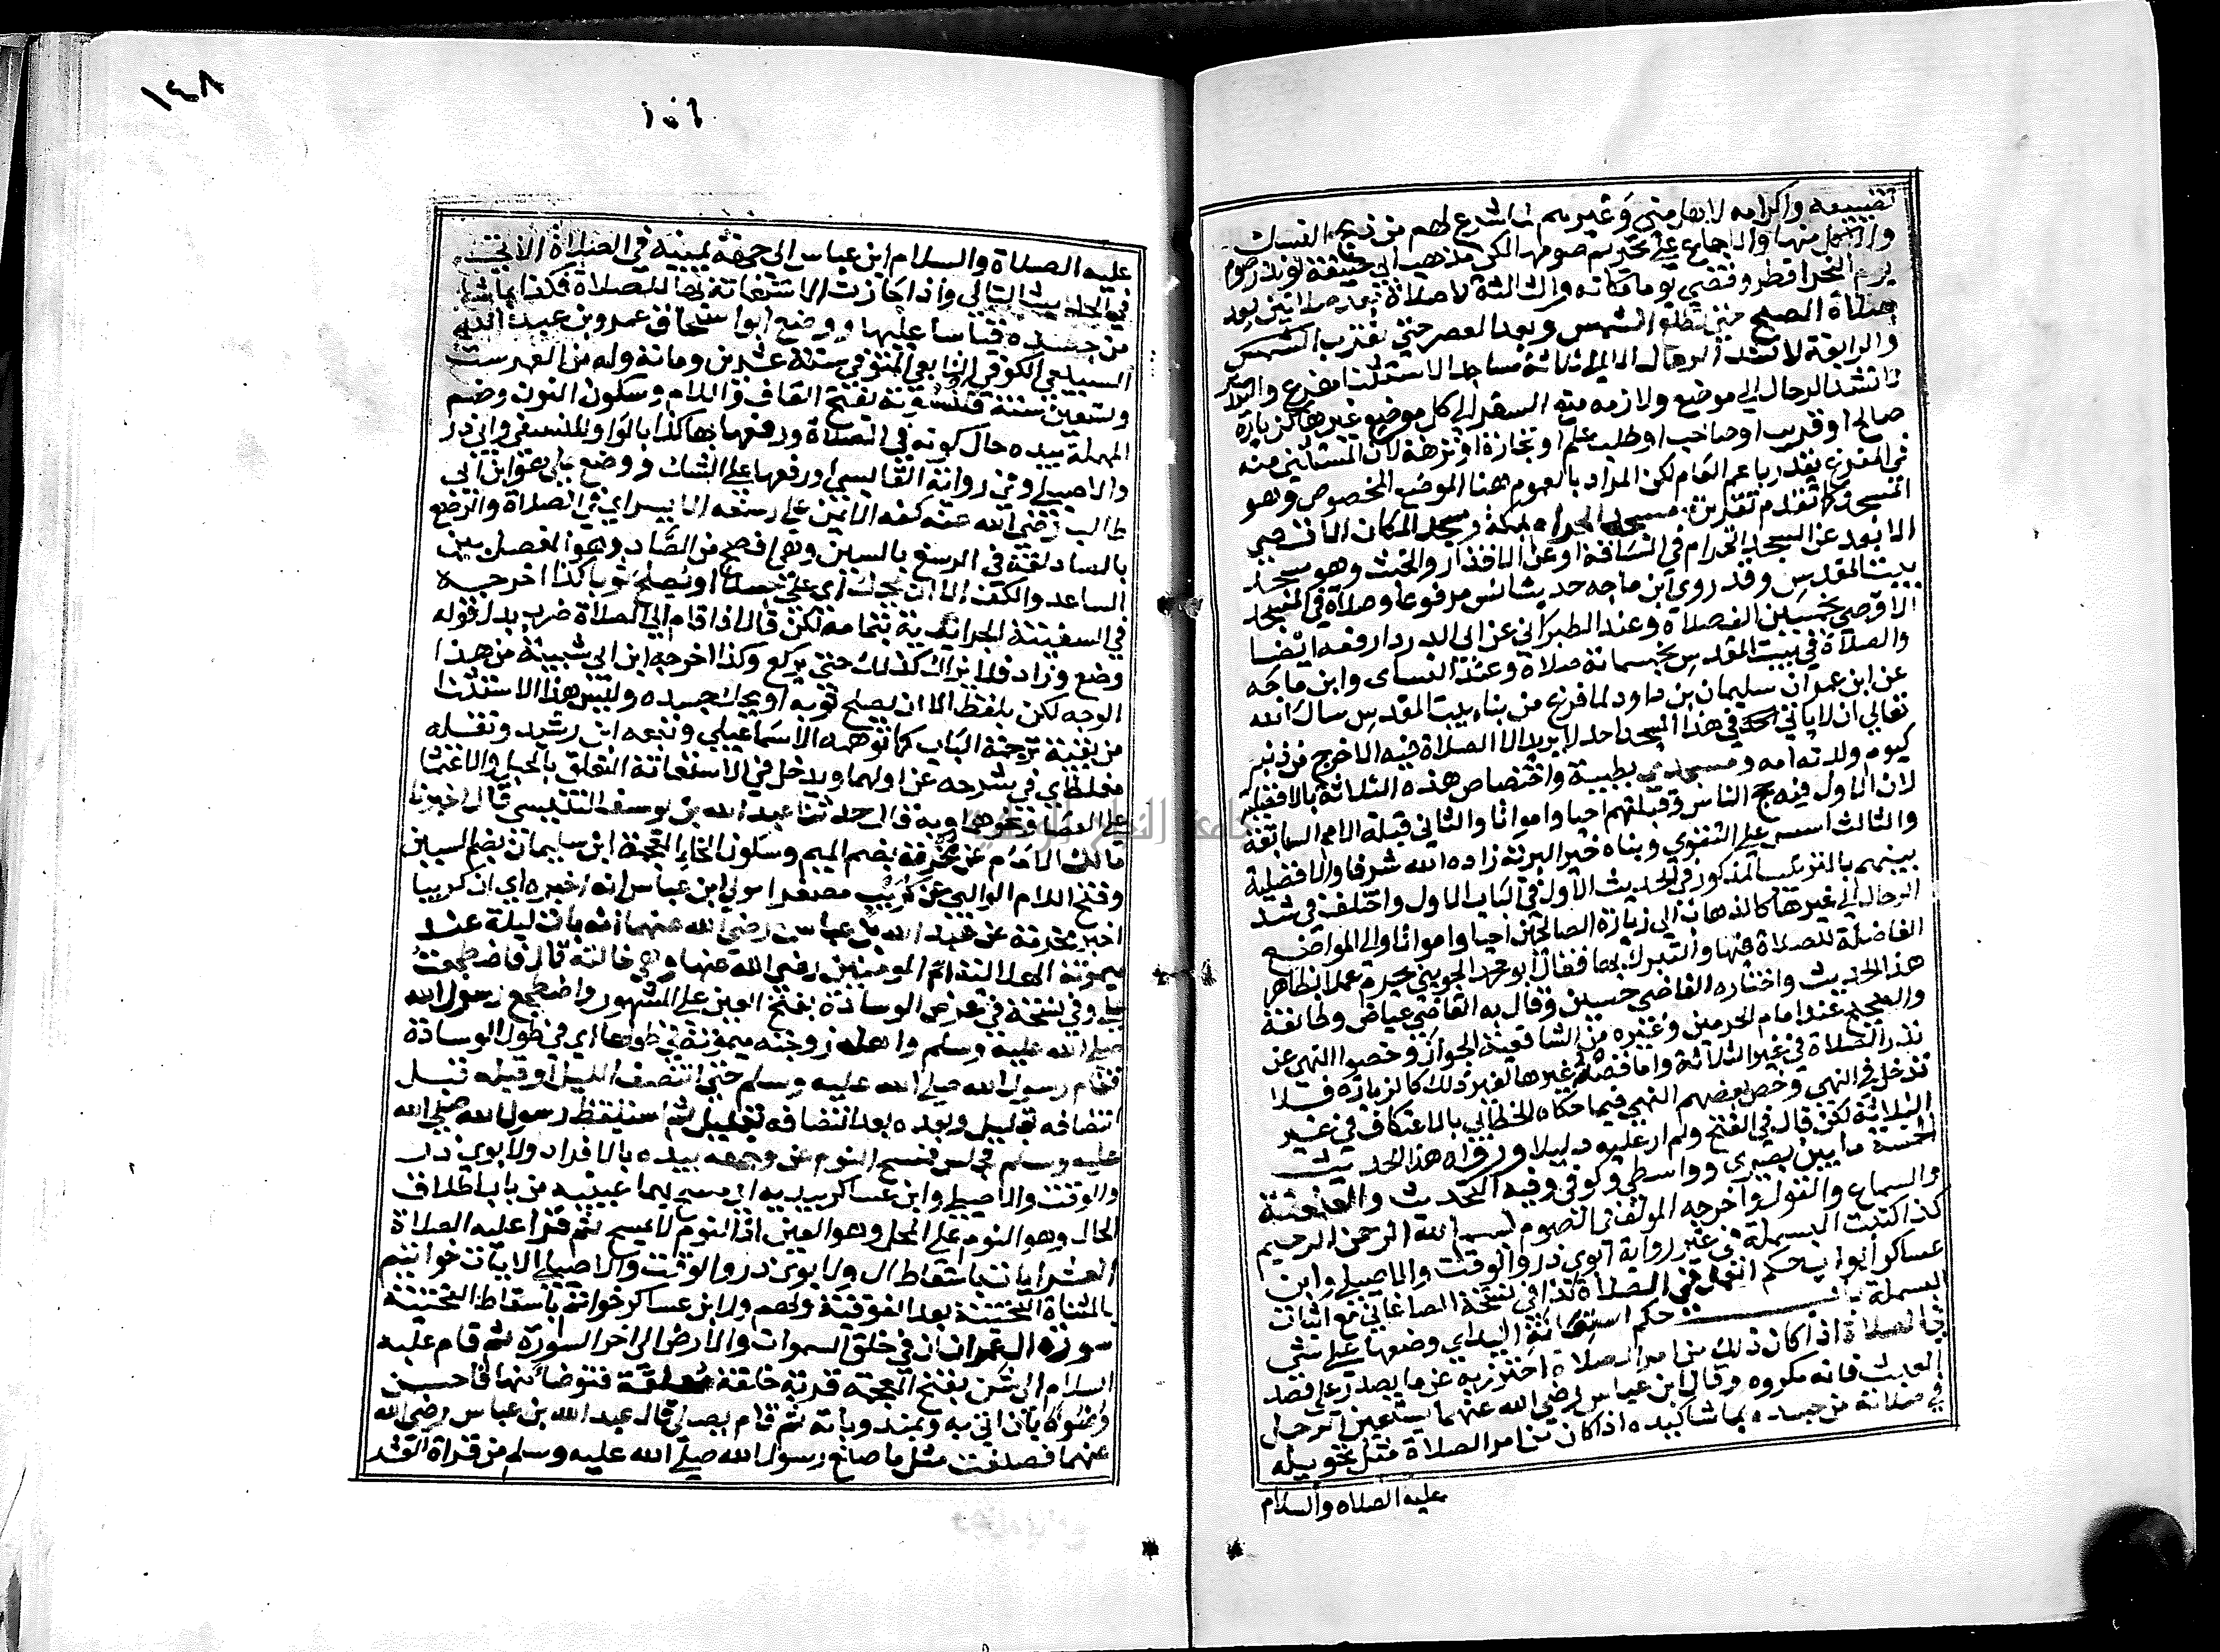 تضييعه واكرامه لاهل منى وغيرهم لما شرع لهم من ذبح النسك
والاكل منها والاجماع على تحريم صومها لكن مذهب ابي حنيفة لو نذر صوم
يوم النحر افطر وقضى يوما مكانه والثالثة لا صلاة بعد صلاتين بعد
صلاة الصبح حتى تطلع الشمس وبعد العصر حتى تغرب الشمس
والرابعة لا تشد الرحال الا الى ثلاثة مساجد الاستثنا مفرغ والتقدير
لا تشد الرحال الى موضع ولازمه منع السفر الى كل موضع غيرها كزيارة
صالح او قريب او صاحب او طلب علم او تجارة او نزهة لان المستثنى منه
في المفرغ يقدر باعم العام لكن المراد بالعموم هنا الموضع المخصوص وهو
المسجد كما تقدم تقديره مسجد الحرام بمكة ومسجد المكان الاقصى
الابعد عن المسجد الحرام في المسافة او عن الاقذار والخبث وهو مسجد
بيت المقدس وقد روى ابن ماجه حديث انس مرفوعا وصلاة في المسجد
الاقصى بخمسين الف صلاة وعند الطبراني عن ابي الدردا رفعه ايضا
والصلاة في بيت المقدس بخمسمائة صلاة وعند النساى وابن ماجه
عن ابن عمرو ان سليمان بن داود لما فرغ من بناء بيت المقدس سال الله
تعالى ان لا ياتي هذا المسجد احد لا يريد الا الصلاة فيه الا خرج من ذنبه
كيوم ولدته امه ومسجدي بطيبة واختصاص هذه الثلاثة بالافضلية
لان الاول فيه حج الناس وقبلتهم احيا وامواتا والثاني قبلة الامم السابقة
والثالث اسس على التقوى وبناه خير البرية زاده الله شرفا والافضلية
بينهم بالترتيب المذكور في الحديث الاول في الباب الاول واختلف في شد
الرحال الى غيرها كالذهاب الى زيارة الصالحين احيا وامواتا والى المواضع
الفاضلة للصلاة فيها والتبرك بها فقال ابو محمد الجويني يحرم عملا بظاهر
هذا الحديث واختاره القاضي حسين وقال به القاضي عياض وطائفة
والصحيح عند امام الحرمين وغيره من الشافعية الجواز وخصوا النهي عن
نذر الصلاة في غير الثلاثة واما قصد غيرها لغير ذلك كالزيارة فلا
تدخل في النهي وخص بعضهم النهي فيما حكاه الخطابي بالاعتكاف في غير
الثلاثة لكن قال في الفتح ولم ار عليه دليلا ورواة هذا الحديث
الخمسة ما بين بصري وواسطي وكوفي وفيه التحديث والعنعنة
والسماع والقول واخرجه المولف في الصوم بسم الله الرحمن الرحيم
كذا اكتتبت البسملة في غير رواية ابوي ذر والوقت والاصيلي وابن
عساكر ابواب حكم العمل في الصلاة كذا في نسخة الصاغاني مع اثبات
البسملة باب حكم استعانة اليد اي وضعها على شي
في الصلاة اذا كان ذلك من امر الصلاة احترز به عن ما يصدر على قصد
العبث فانه مكروه وقال ابن عباس رضي الله عنهما يستعين الرجل
في صلاته من جسده بما شا كيده اذا كان من امر الصلاة مثل تحويله
عليه الصلاة والسلام
١٤٨
عليه الصلاة والسلام ابن عباس الى جهة يمينه في الصلاة الاتي
في الحديث التالي واذا جازت الاستعانة بها للصلاة فكذا بما شا
من جسده قياسا عليها ووضع ابو اسحاق عمرو بن عبد الله
السبيعي الكوفي التابعي المتوفى سنة عشرين ومائة وله من العمر ست
وتسعين سنة قلنسوته بفتح القاف واللام وسكون النون وضم
المهملة بيده حال كونه في الصلاة ورفعها بها كذا بالواو للنسفي وابي ذر
والاصيلي وفي رواية القابسي او رفعها على الشك ووضع علي هو ابن ابي
طالب رضي الله عنه كفه الايمن على رسغه الايسر اي في الصلاة والرصغ
بالصاد لغة في الرسغ بالسين وهي افصح من الصاد وهو المفصل بين
الساعد والكف الا ان يحك اي علي جسدا او يصلح ثوبا كذا اخرجه
في السفينة الجرايدية بتمامه لكن قال اذا قام الى الصلاة ضرب بدل قوله
وضع وزاد فلا يزال كذلك حتى يركع وكذا اخرجه ابن ابي شيبة من هذا
الوجه لكن بلفظ الا ان يصلح ثوبه او يحك جسده وليس هذا الاستثنا
من بقية ترجمة الباب كما توهمه الاسماعيلي وتبعه ابن رشيد ونقله
مغلطاي في شرحه عن اولهما ويدخل في الاستعانة التعلق بالحبل والاعتما
على العصا ونحوهما وبه قال حدثنا عبد الله بن يوسف التنيسي قال اخبرنا
مالك الامام عن مخرمة بضم الميم وسكون الخاء المعجمة ابن سليمان بضم السين
وفتح اللام الوالبي عن كريب مصغرا مولى ابن عباس انه اخبره اي ان كريبا
اخبر مخرمة عن عبد الله بن عباس رضي الله عنهما انه بات ليلة عند
ميمونة الهلالية ام المومنين رضي الله عنها وهي خالته قال فاضطجعت
على وفي نسخة في عرض الوسادة بفتح العين على المشهور واضطجع رسول الله
صلى الله عليه وسلم واهله زوجته ميمونة في طولها اي في طول الوسادة
فنام رسول الله صلى الله عليه وسلم حتى انتصف الليل او قبله قبل
انتصافه بقليل وبعده بعد انتصافه بقليل ثم استيقظ رسول الله صلى الله
عليه وسلم فجلس فمسح النوم عن وجهه بيده بالافراد ولابوي ذر
والوقت والاصيلي وابن عساكر بيديه اي مسح بهما عينيه من باب اطلاق
الحال وهو النوم على المحل وهو العين اذا النوم لا يمسح ثم قرا عليه الصلاة
العشر ايات باسقاط ال ولابوي ذر والوقت والاصيلي الايات خواتيم
بالمثناة التحتية بعد الفوقية ولهم ولابن عساكر خواتم باسقاط التحتية
سورة ال عمران ان في خلق السموات والارض الى اخر السورة ثم قام عليه
السلام الى شن بفتح المعجمة قربة خلقة معلقة فتوضا منها فاحسن
وضوه بان اتى به وبمندوباته ثم قام يصلي قال عبد الله بن عباس رضي الله
عنهما فصنعت مثل ما صنع رسول الله صلى الله عليه وسلم من قراة العشر